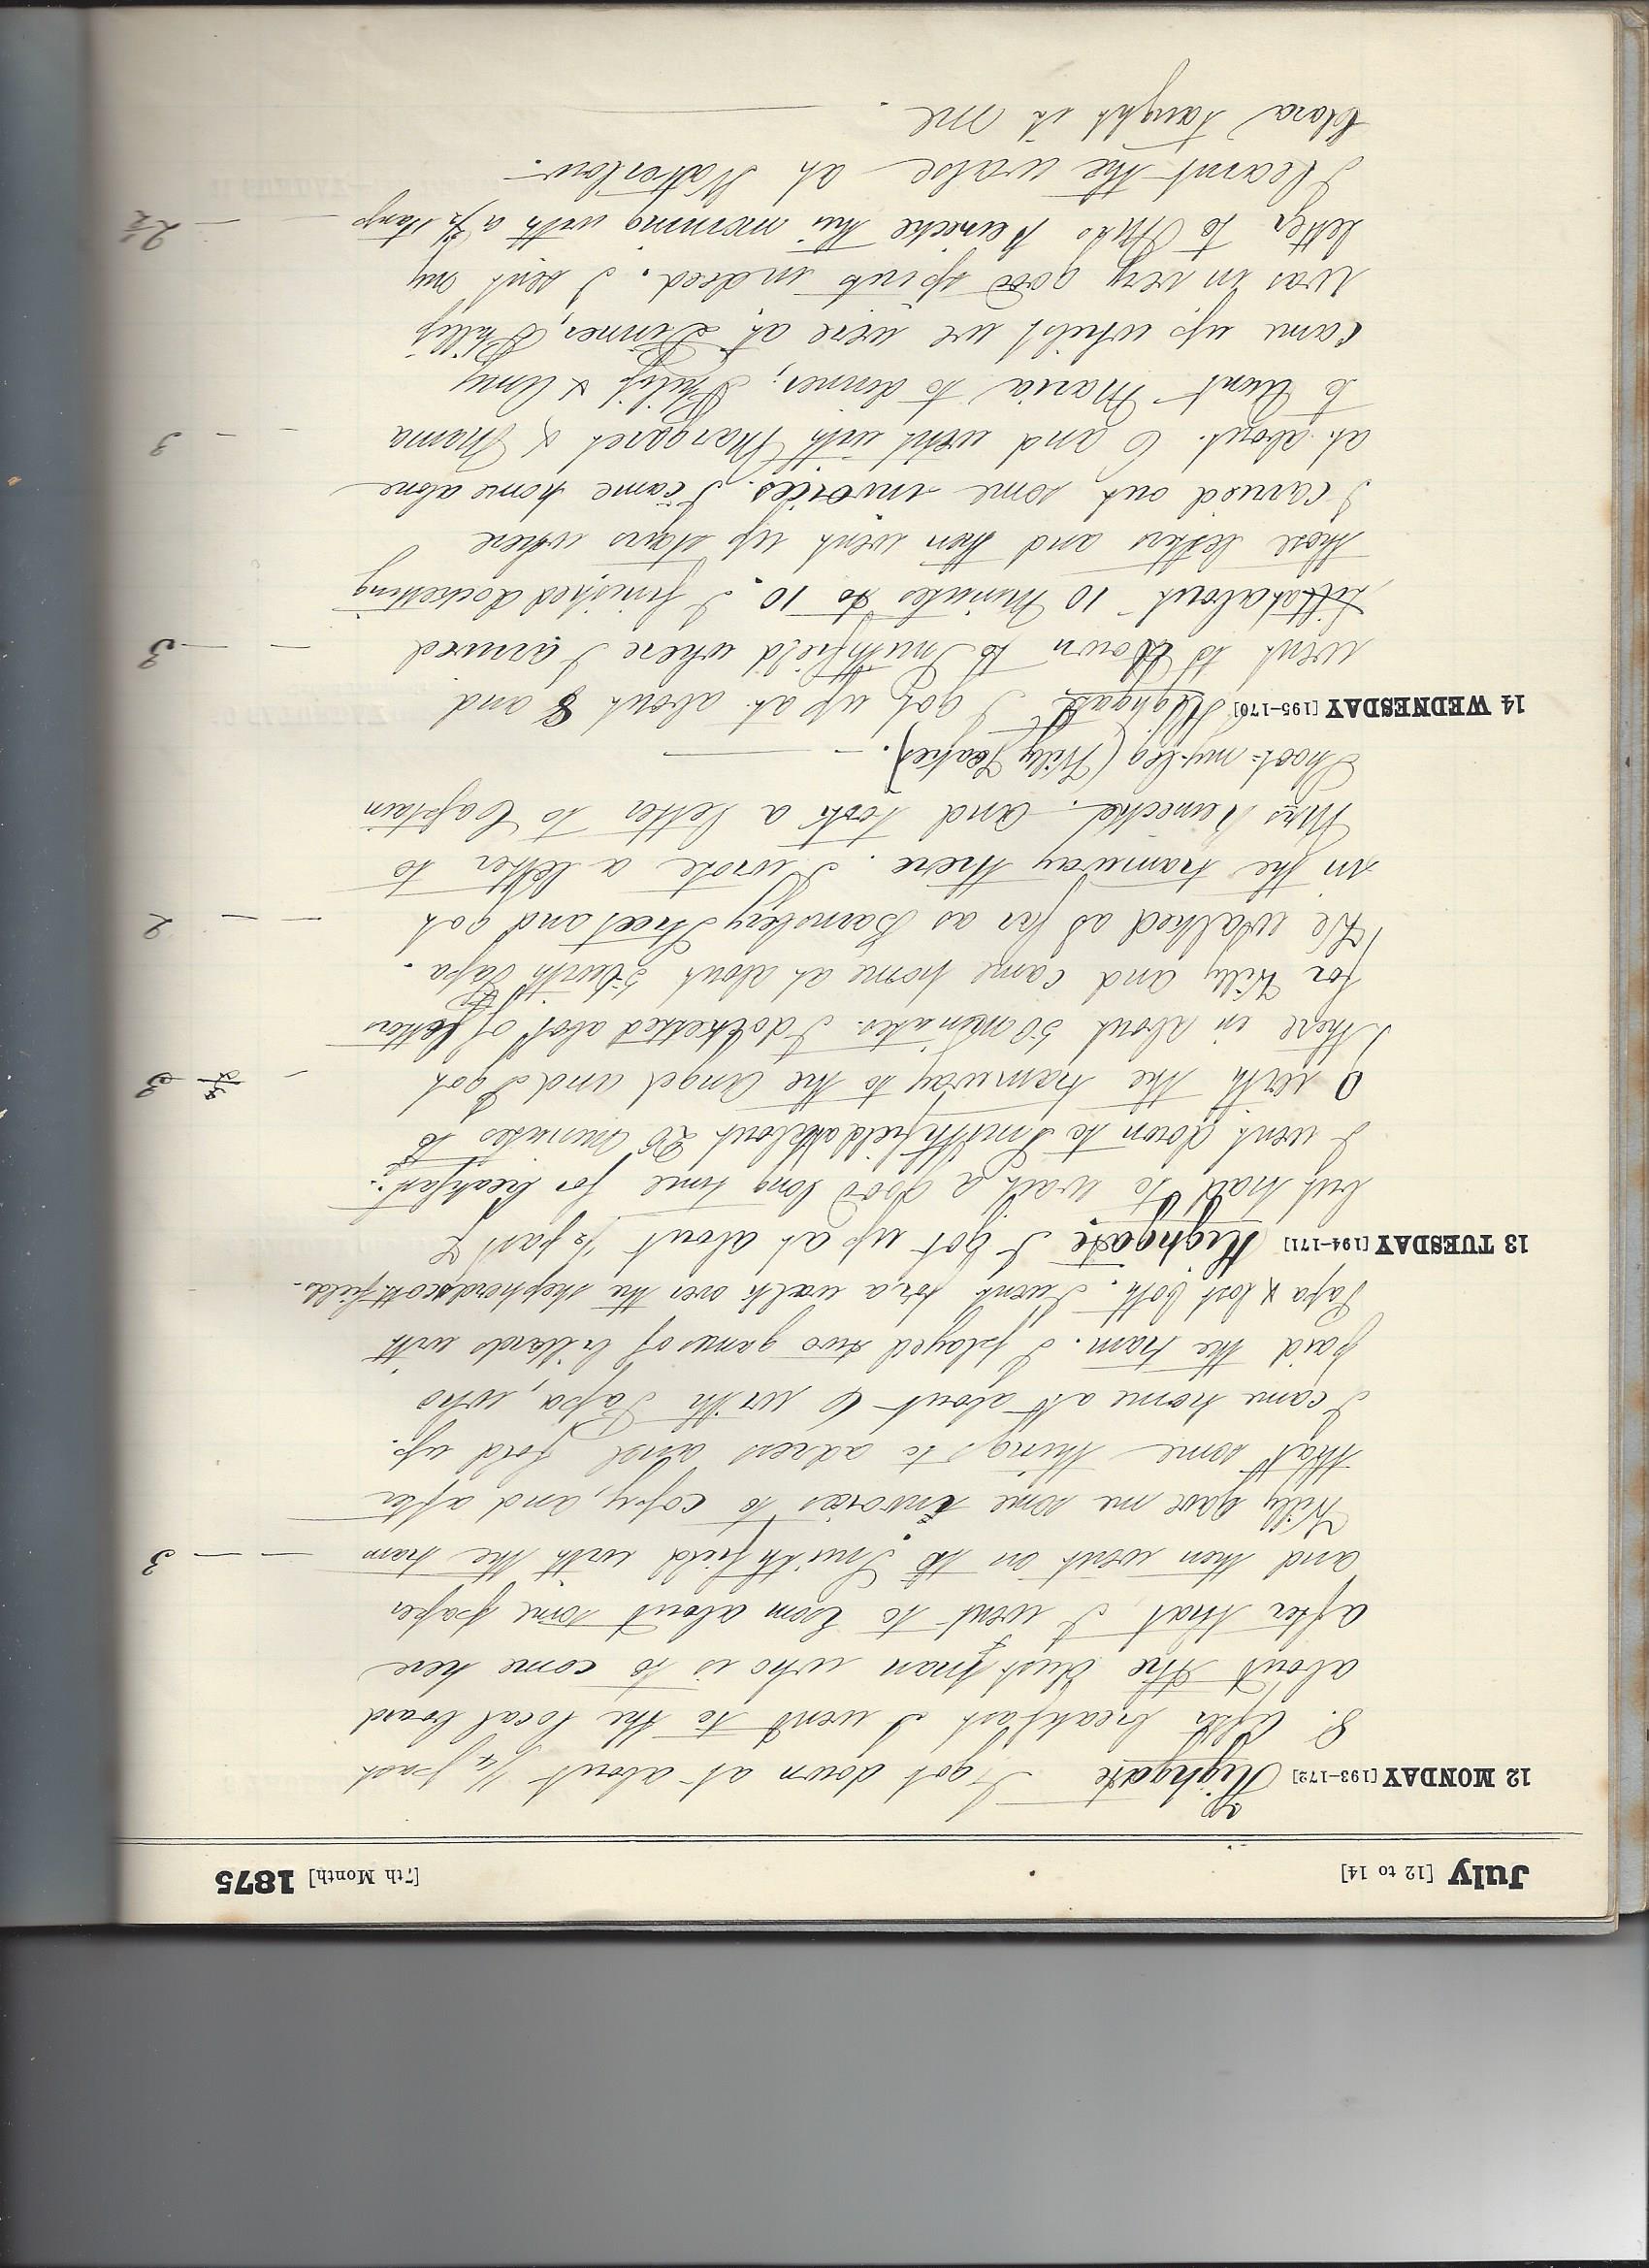 July [12 to 14] [7th Month] 1875
12 MONDAY [193-172] Highgate I got down at about 1/4 past
8. After breakfast I went to the local board
about the dust man who is to come here
after that I went to Tom about some paper
and then went on to Smithfield with the tram — — 3
Willy gave me some invoices to copy, and after
that some things to adress and fold up.
I came home at about 6 with Papa, who
paid the tram. I played two games of billards with
Papa & lost both. I went for a walk over the field.
13 TUESDAY [194-171] Highgate I got up at about 1/2 past 7
but had to wait a good long time for breakfast.
I went down to Smithfield at about 20 minutes to
9 with the tramway to the Angel and I got — 3
there in about 50 minutes. I docketted alot of letters
for Willy and came home at about 5 with Papa.
We walked as far as Barnsbery Street and got — — 2
in the tramway there. I wrote a letter to
Mrs and took a letter to Captain
Shoot-my-leg (Willy).
14 WEDNESDAY [195-170] Highgate I got up at about 8 and
went to down to Smithfield where I arrived — — 3
till at about 10 Minutes to 10. I finished docketting
those letters and then went up stairs where
I carried out some invoices. I came home alone
at about 6 and went with Margaret & Mama — — 3
to Aunt Maria to dinner; Philip & Amy
came up whilst we were at Dinner,
was in very good spirits indeed. I sent my
letter to Mrs this morning with a stamp — — 2½
I learnt the walse at
Clara taught it me.